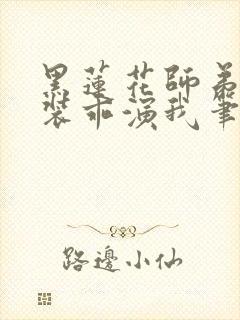 黑蓮花師弟
裝乖演我筆
路邊小仙